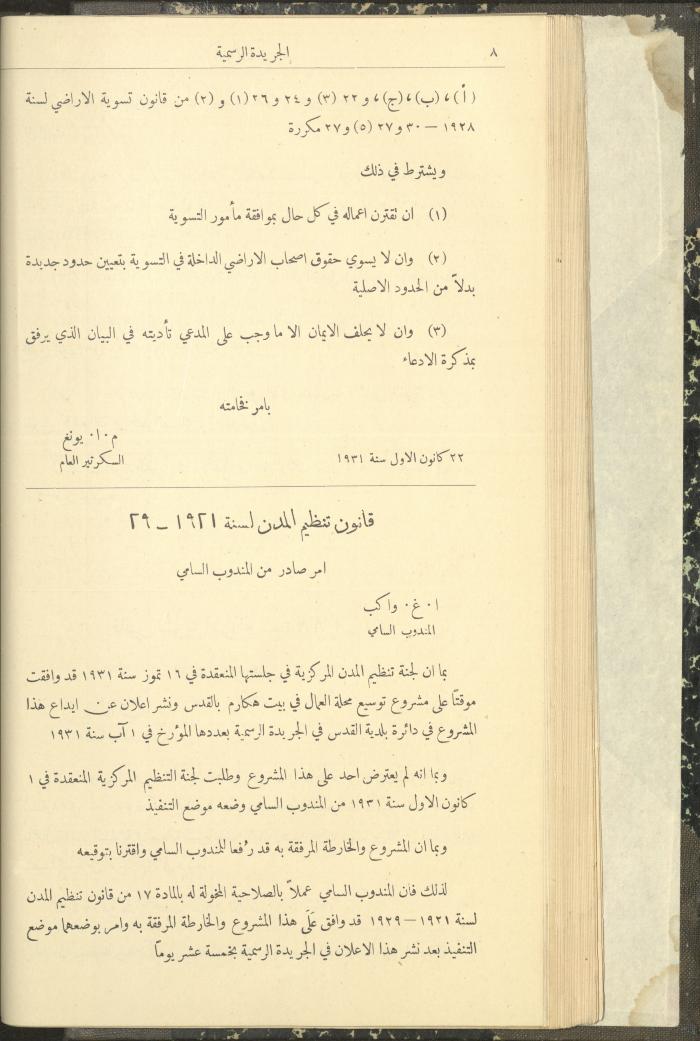 ٨
الجريدة الرسمية
(أ)،(ب)،(ج)، و ٢٢ (٣) و ٢٤ و ٢٦ (١) و (٢) من قانون تسوية الاراضي لسنة
١٩٢٨ — ٣٠ و ٢٧ (٥) و ٢٧ مكررة
ويشترط في ذلك
(١) ان تقترن اعماله في كل حال بموافقة مأمور التسوية
(٢) وان لا يسوي حقوق اصحاب الاراضي الداخلة في التسوية بتعيين حدود جديدة
بدلاً من الحدود الاصلية
(٣) وان لا يحلف الايمان الا ما وجب على المدعي تأديته في البيان الذي يرفق
بمذكرة الادعاء
بامر فخامته
م٠ا٠ يونغ
٢٢ كانون الاول سنة ١٩٣١
السكرتير العام
قانون تنظيم المدن لسنة ١٩٢١ – ٢٩
امر صادر من المندوب السامي
ا٠ غ٠ واكب
المندوب السامي
بما ان لجنة تنظيم المدن المركزية في جلستها المنعقدة في ١٦ تموز سنة ١٩٣١ قد وافقت
موقتاً على مشروع توسيع محلة العمال في بيت هكارم بالقدس ونشر اعلان عن ايداع هذا
المشروع في دائرة بلدية القدس في الجريدة الرسمية بعددها المؤرخ في ١ آب سنة ١٩٣١
وبما انه لم يعترض احد على هذا المشروع وطلبت لجنة التنظيم المركزية المنعقدة في ١
كانون الاول سنة ١٩٣١ من المندوب السامي وضعه موضع التنفيذ
وبما ان المشروع والخارطة المرفقة به قد رُفعا للمندوب السامي واقترنا بتوقيعه
لذلك فان المندوب السامي عملاً بالصلاحية المخولة له بالمادة ١٧ من قانون تنظيم المدن
لسنة ١٩٢١ — ١٩٢٩ قد وافق عَلَى هذا المشروع والخارطة المرفقة به وامر بوضعهما موضع
التنفيذ بعد نشر هذا الاعلان في الجريدة الرسمية بخمسة عشر يوماً